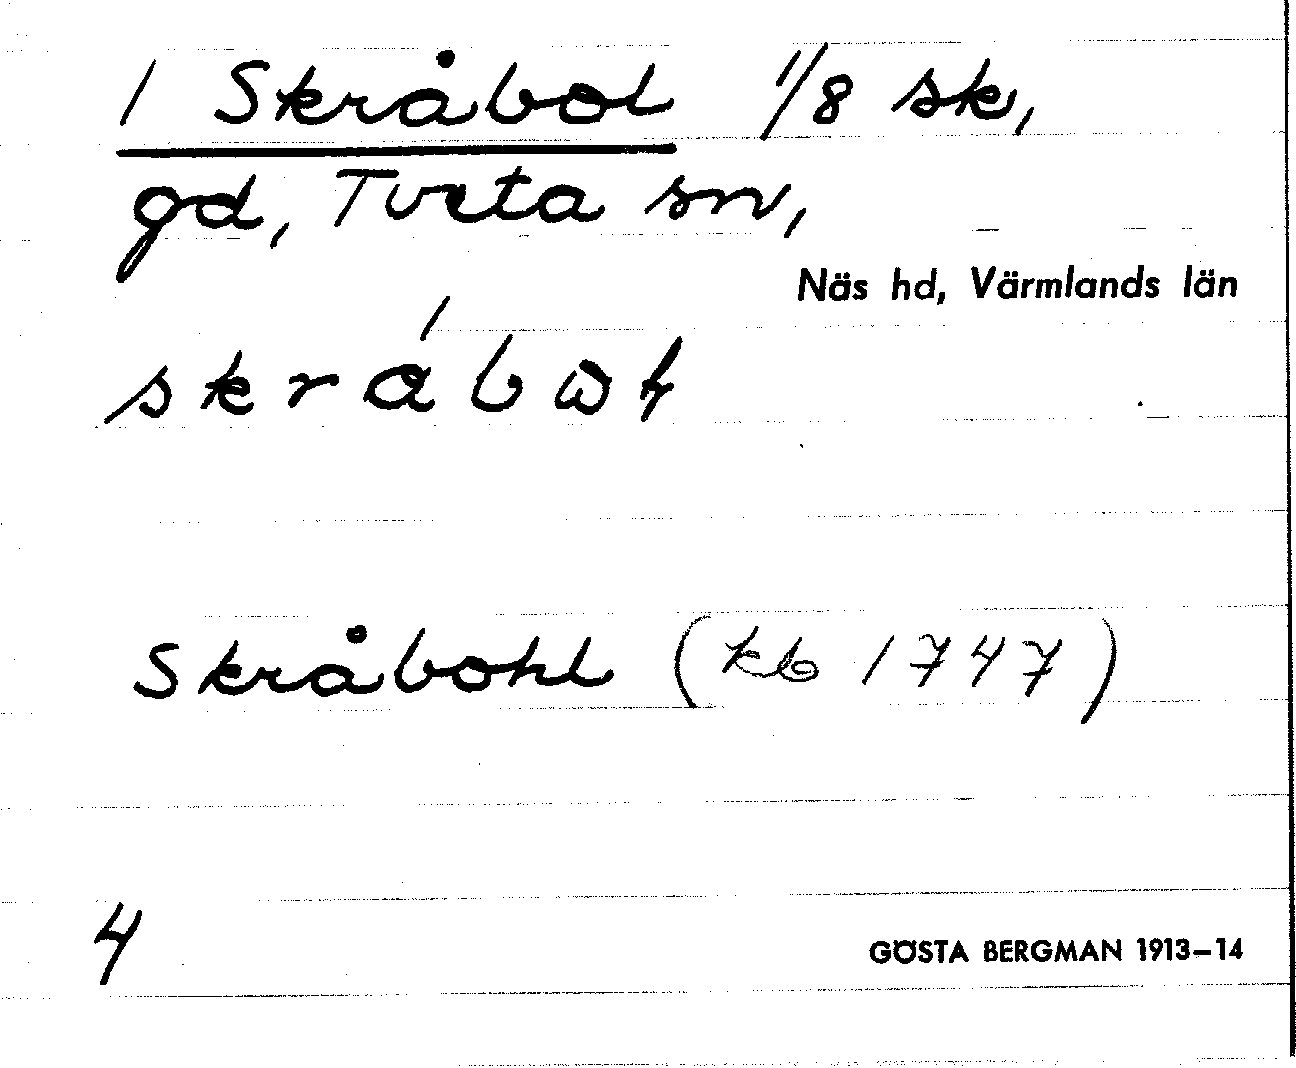 1 Skråbol 1/8 sk,
gd, Tveta sn,
Näs hd, Värmlands län
Skråbohl (kb 1747)
4
GÖSTA BERGMAN 1913–14